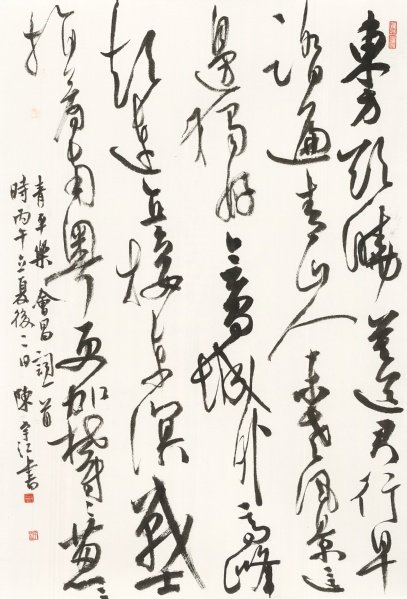 東方欲曉莫道君行早
踏遍青山人未老風景這
邊獨好會昌城外高峰
顛連直接東溟戰士
指看南粵更加鬱〻葱〻
青平樂 會昌 詞一首
時丙午立夏後二日 陳 書